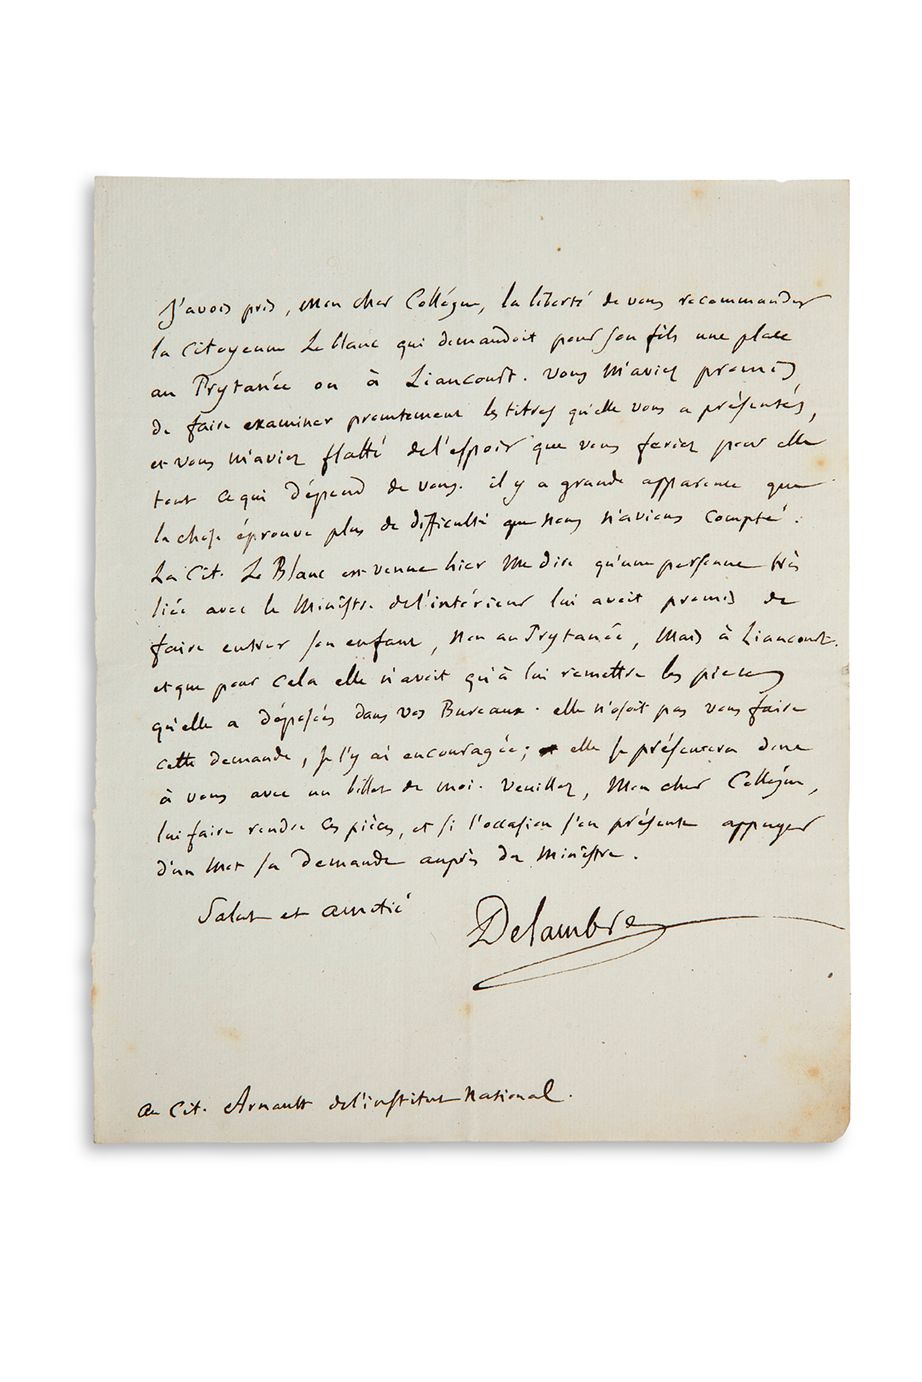 J'avois pris, Mon cher Collégue, la liberté de vous recommander
la Citoyenne Le blanc qui demandoit pour son fils une place
au Prytanée ou à Liancourt. Vous m'aviez promis
de faire examiner promtement les titres qu'elle vous a présentés,
et vous m'aviez flatté de l'espoir que vous feriez pour elle
tout ce qui dépend de vous. il y a grande apparence que
la chose éprouve plus de difficulté que nous n'avions compté.
La Cit. Le Blanc est venue hier me dire qu'une personne très
liée avec le Ministre de l'intérieur lui avoit promis de
faire entrer son enfant, non au Prytanée, mais à Liancourt.
et que pour cela elle n'avoit qu'à lui remettre les pieces
qu'elle a déposées dans vos Bureaux. elle n'osoit pas vous faire
cette demande, je l'y ai encouragée; elle se présentera donc
à vous avec un billet de moi. Veuillez, Mon cher Collégue,
lui faire rendre ces pièces, et si l'occasion s'en présente appuyer
d'un mot sa demande auprès du Ministre.
Salut et amitié
Delambre
au Cit. Arnault de l'institut National.